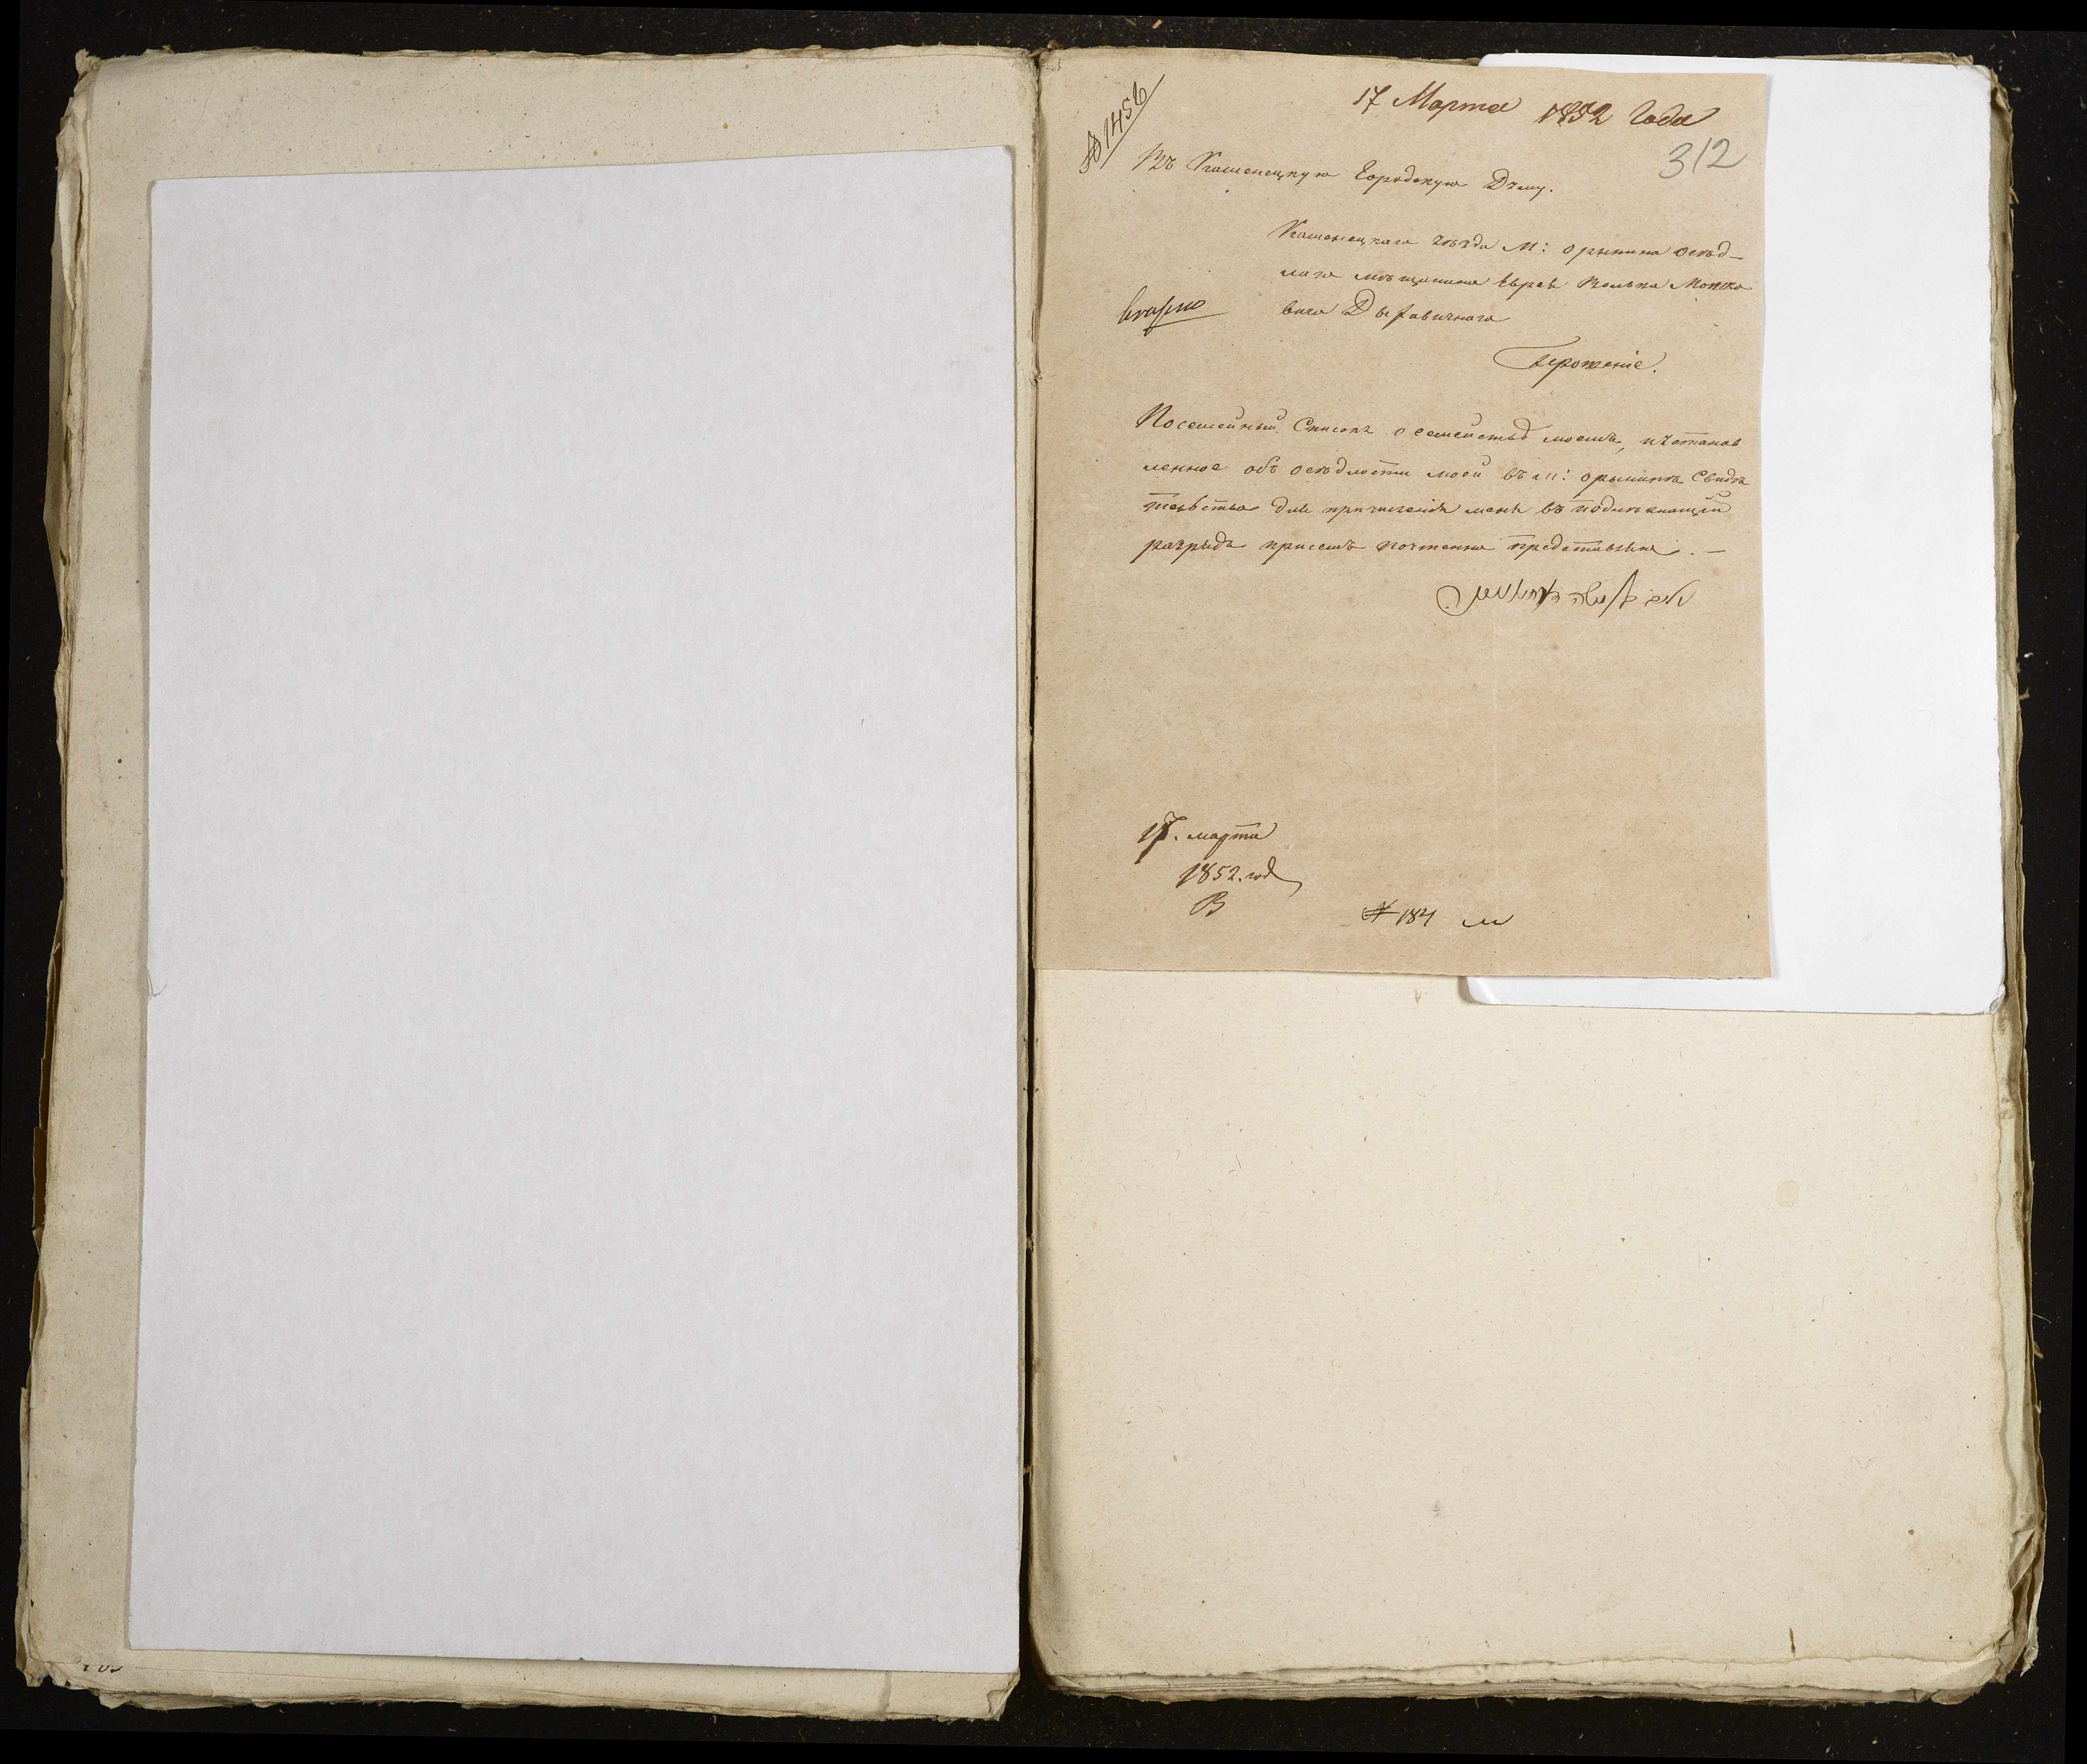 № 1456
17 Марта 1852 Года
312
Въ Каменецкую Городскую Думу.
Каменецкаго уезда М: орынина осѣд-
лаго мѣщанина Еврея Волька Мошко
вича
Прошение.
Посемейный Списокъ о семействѣ моемъ, и установ
ленное объ осѣдлости моей въ м: орынинѣ Свидѣ
тельство для причисления меня въ подлежащий
разрядъ присемъ почтенно представляю. —
17. марта
1852. год
В
№ 184